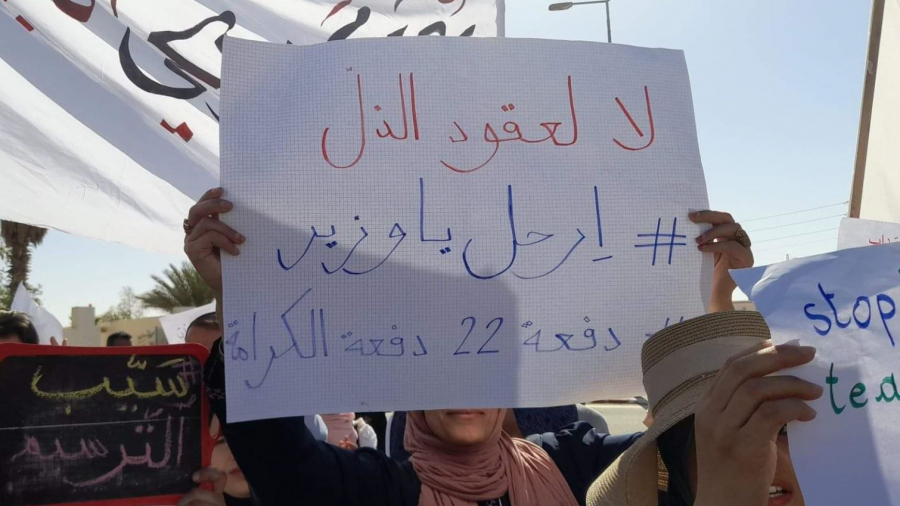 لا لعقود الذلّ
# إرحل ياوزير
# دفعة 22 دفعة الكرامة
#سَيِّب
التّرسيم
stop
tea